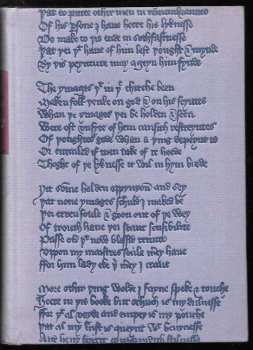 Þat to putte othir men in remembraunce
Of his persone I haue heere his lyknesse
Do make to þis ende in sothfastnesse
Þat þei þt haue of him lest þought & mynde
By þis peynture may ageyn him fynde
The ymages þt in þe chirche been
Maken folk þenke on god & on his seyntes
Whan þe ymages þei be holden & seen
Were oft vnsyte of hem causith restreyntes
Of þoughtes gode whan a þing depeynt is
Or entailed if men take of it heede
Thoght of þe lyknesse it wil in hem brede
Yit somme holden oppynyoun and sey
Þat none ymages schuld I maked be
Þei erren foule & goon out of þe wey
Of trouth haue þei scant sensibilite
Passe ouer þt now blessid trinite
Vpon my maistres soule mercy haue
ffor him lady eke þi mercy I craue
More othir þing wolde I fayne speke & touche
Heere in þis booke but schuch is my dulnesse
ffor þt al voyde and empty is my pouche
Þat al my lust is queynt wt heuynesse
And heuy spirit comaundith stilnesse